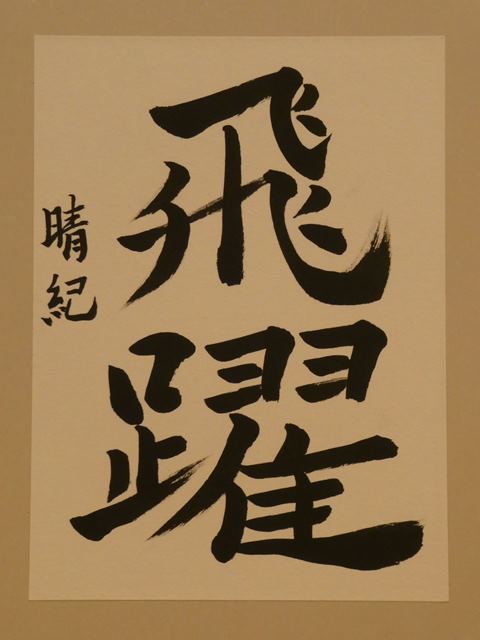 飛躍
晴紀